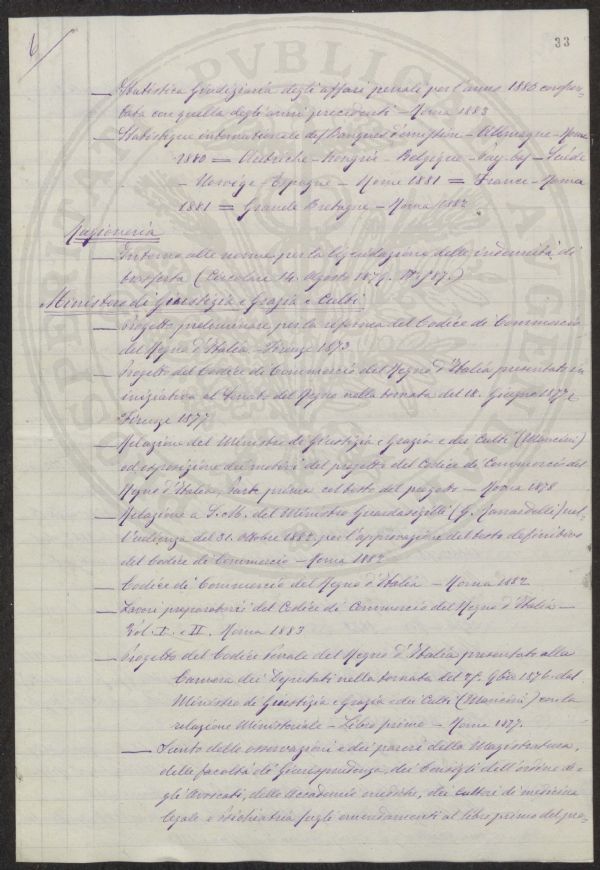 6
33
— Statistica Giudiziaria degli affari penali per l'anno 1880 confron-
tata con quella degli anni precedenti — Roma 1883
— Statistique internationale des Banques d'emission — Allemagne — Rome
1880 = Autriche — Hongrie — Belgique — Pays-bas — Suède
— Norvège — Espagne — Rome 1881 = France — Roma
1881 = Grande Bretagne — Roma 1882
Ragioneria
— Intorno alle norme per la liquidazione delle indennità di
trasferta (Circolare 14. Agosto 1879.
Ministero di Giustizia e Grazia e Culti
— Progetto preliminare per la riforma del Codice di Commercio
del Regno d'Italia — Firenze 1873
— Progetto del Codice di Commercio del Regno d'Italia presentato in
iniziativa al Senato del Regno nella tornata del 18. Giugno 1877
Firenze 1877
— Relazione del Ministro di Giustizia e Grazia e dei Culti (Mancini)
ed esposizione dei motivi del progetto del Codice di Commercio del
Regno d'Italia, Parte prima col testo del progetto — Roma 1878
— Relazione a S. M. del Ministro Guardasigilli (G. Zanardelli) nel-
l'udienza del 31. Ottobre 1882. per l'approvazione del testo definitivo
del Codice di Commercio — Roma 1882
— Codice di Commercio del Regno d'Italia — Roma 1882
— Lavori preparatorii del Codice di Commercio del Regno d'Italia —
Vol. I. e II. Roma 1883
— Progetto del Codice Penale del Regno d'Italia presentato alla
Camera dei Deputati nella tornata del 25. 9bre 1876. dal
Ministro di Giustizia e Grazia e dei Culti (Mancini) con la
relazione Ministeriale — Libro primo — Rome 1877.
— Sunto delle osservazioni e dei pareri della Magistratura,
delle facoltà di Giurisprudenza, dei Consigli dell'ordine de-
gli Avvocati, delle Accademie mediche, dei cultori di medicina
legale e psichiatria sugli emendamenti al libro primo del pro-